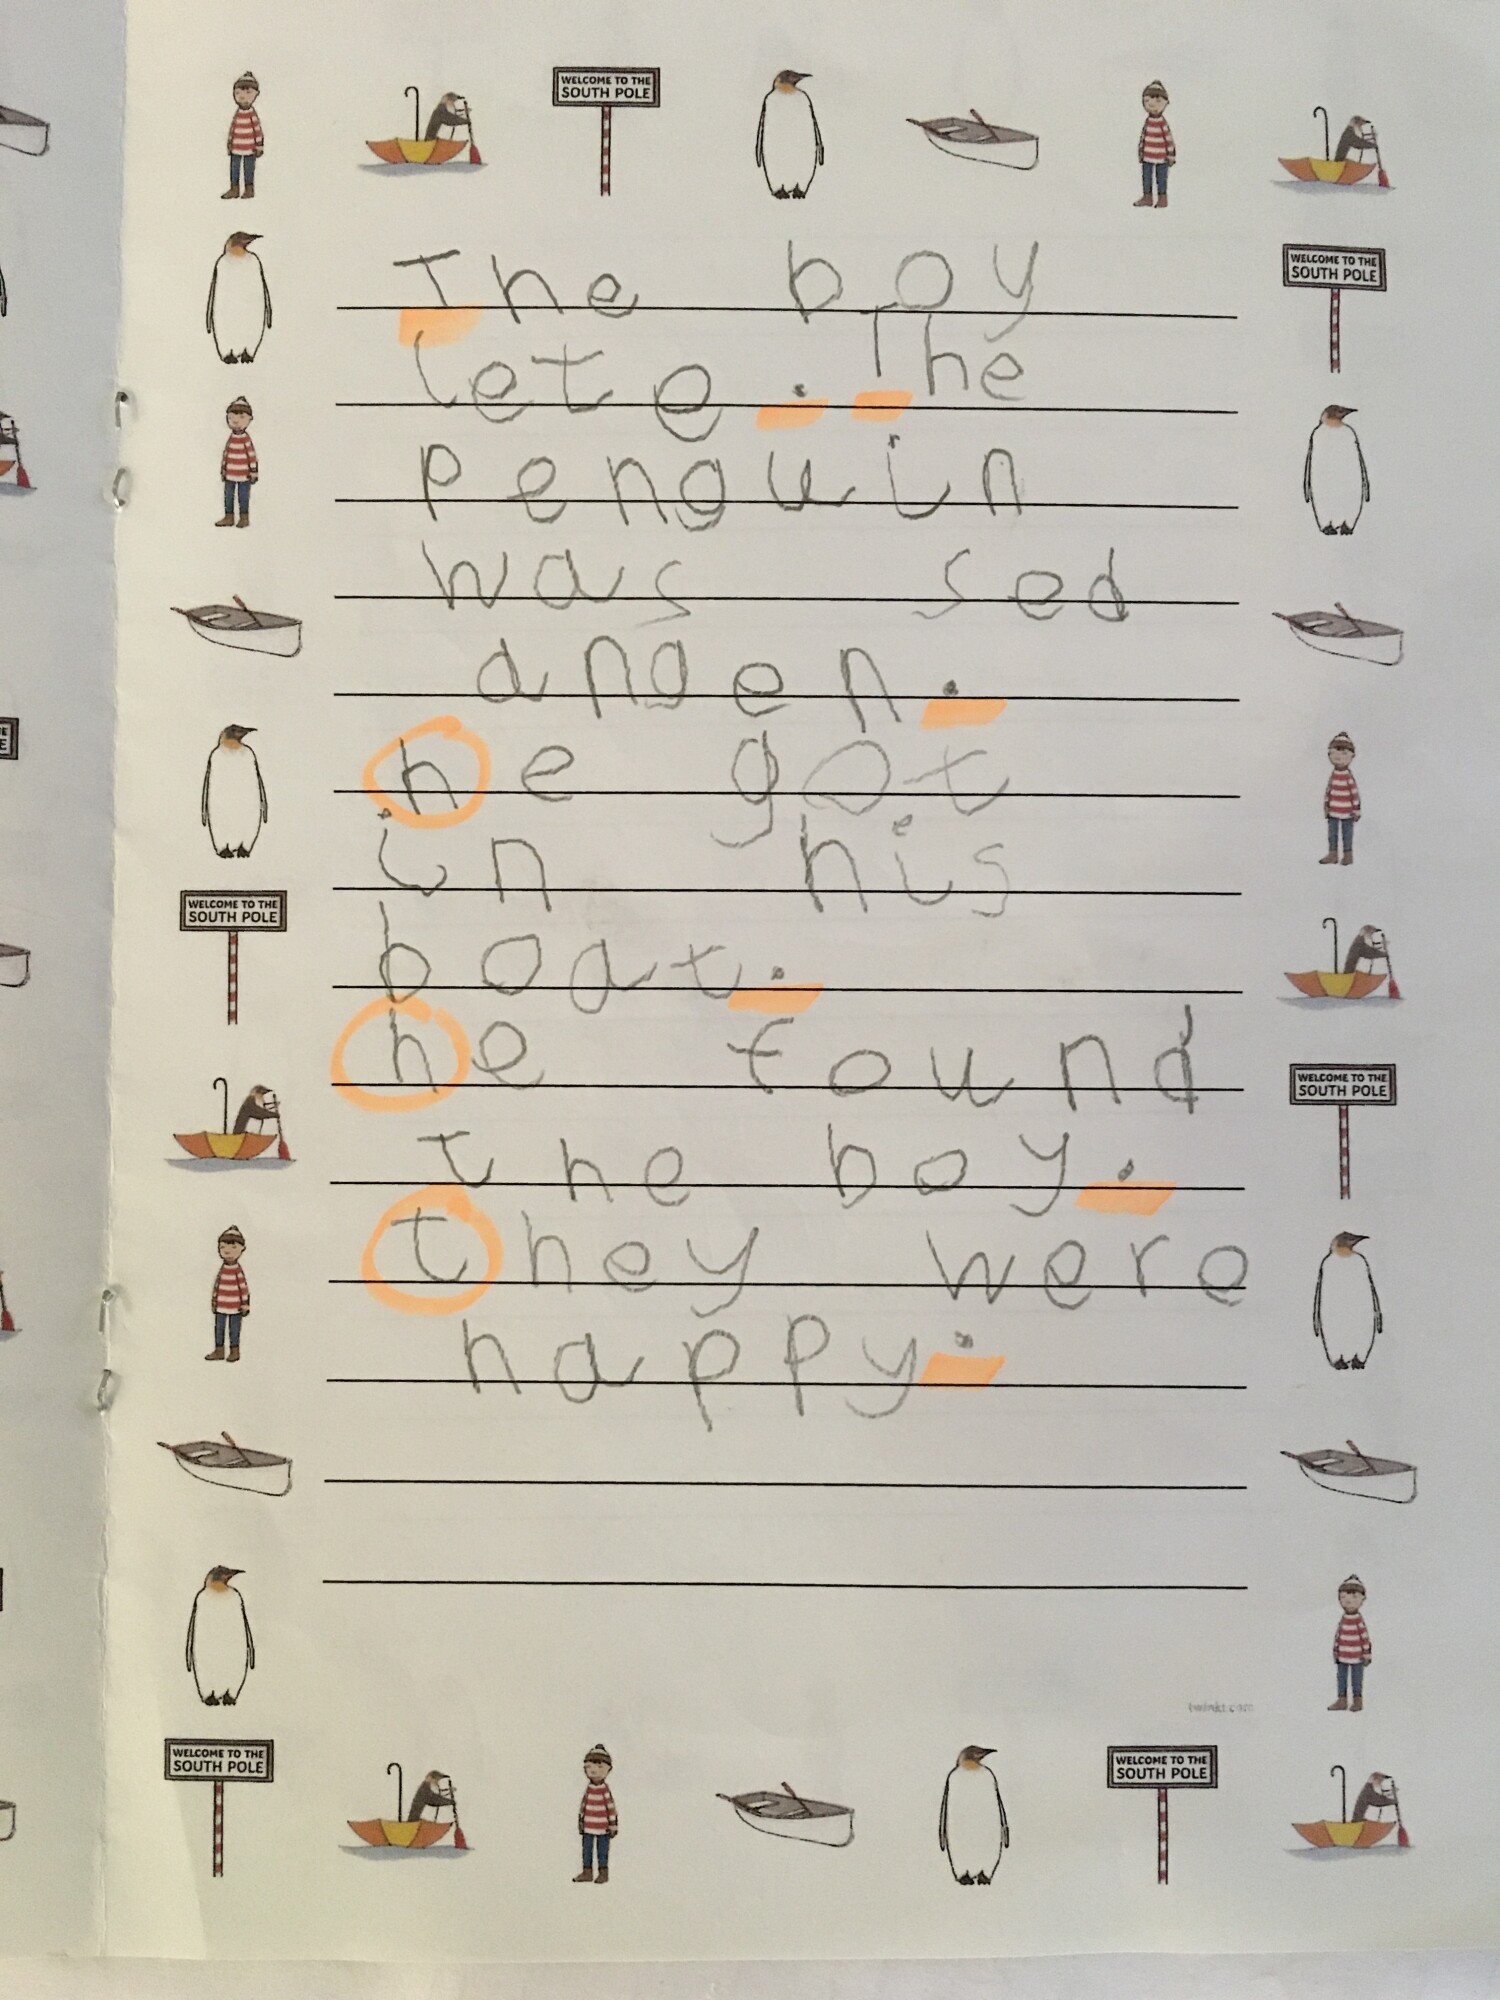 WELCOME TO THE
SOUTH POLE
The boy
WELCOME TO THE
SOUTH POLE
lete. The
penguin
was sed
angen.
he got
in his
WELCOME TO THE
SOUTH POLE
boat.
he found
WELCOME TO THE
SOUTH POLE
the boy.
they were
happy.
twinkl.com
WELCOME TO THE
SOUTH POLE
WELCOME TO THE
SOUTH POLE